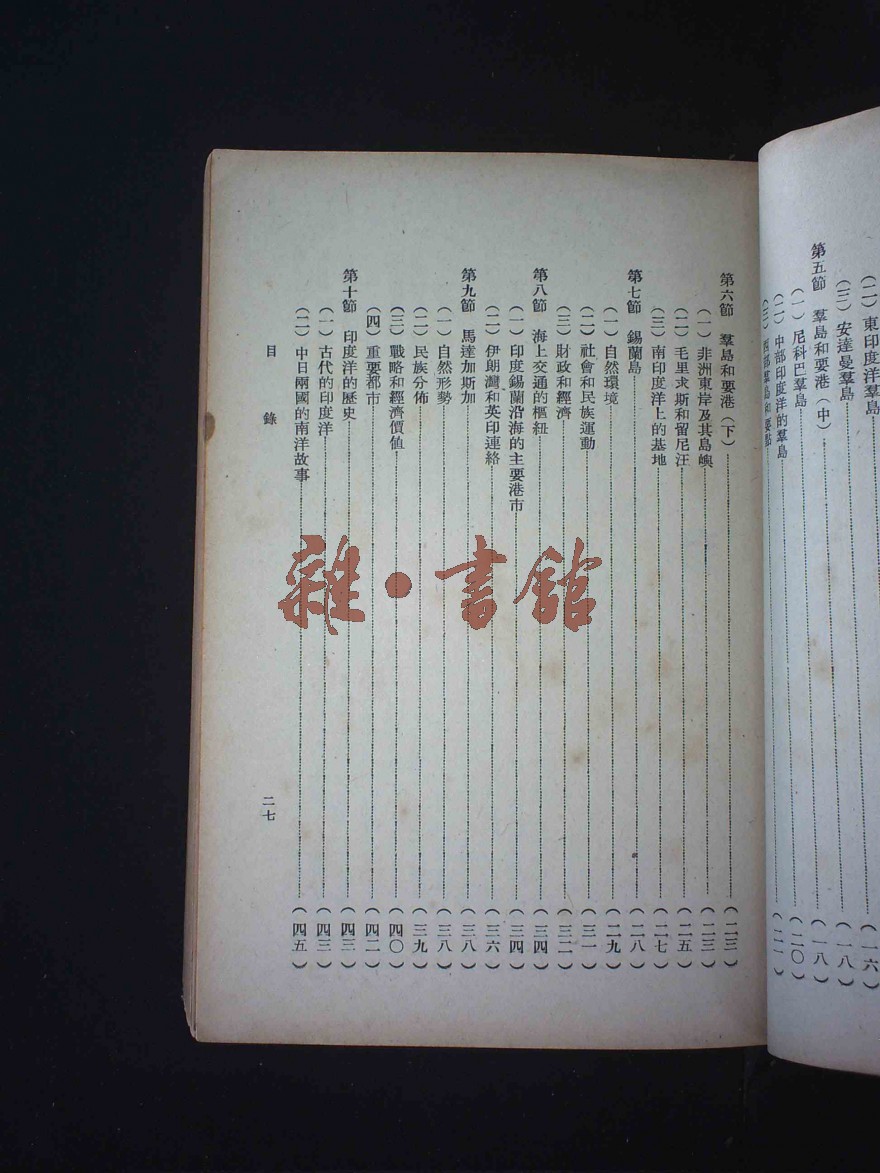 (二) 東印度洋羣島……(一六)
(三) 安達曼羣島……(一八)
第五節 羣島和要港(中)……(一八)
(一) 尼科巴羣島……(二〇)
(二) 中部印度洋的羣島……(二一)
第六節 羣島和要港(下)……(二三)
(一) 非洲東岸及其島嶼……(二三)
(二) 毛里求斯和留尼汪……(二五)
(三) 南印度洋上的基地……(二七)
第七節 錫蘭島……(二八)
(一) 自然環境……(二九)
(二) 社會和民族運動……(三一)
(三) 財政和經濟……(三二)
第八節 海上交通的樞紐……(三四)
(一) 印度錫蘭沿海的主要港市……(三四)
(二) 伊朗灣和英印連絡……(三六)
第九節 馬達加斯加……(三八)
(一) 自然形勢……(三八)
(二) 民族分佈……(三九)
(三) 戰略和經濟價值……(四〇)
(四) 重要都市……(四二)
第十節 印度洋的歷史……(四三)
(一) 古代的印度洋……(四三)
(二) 中日兩國的南洋故事……(四五)
目錄 二七
雜·書館